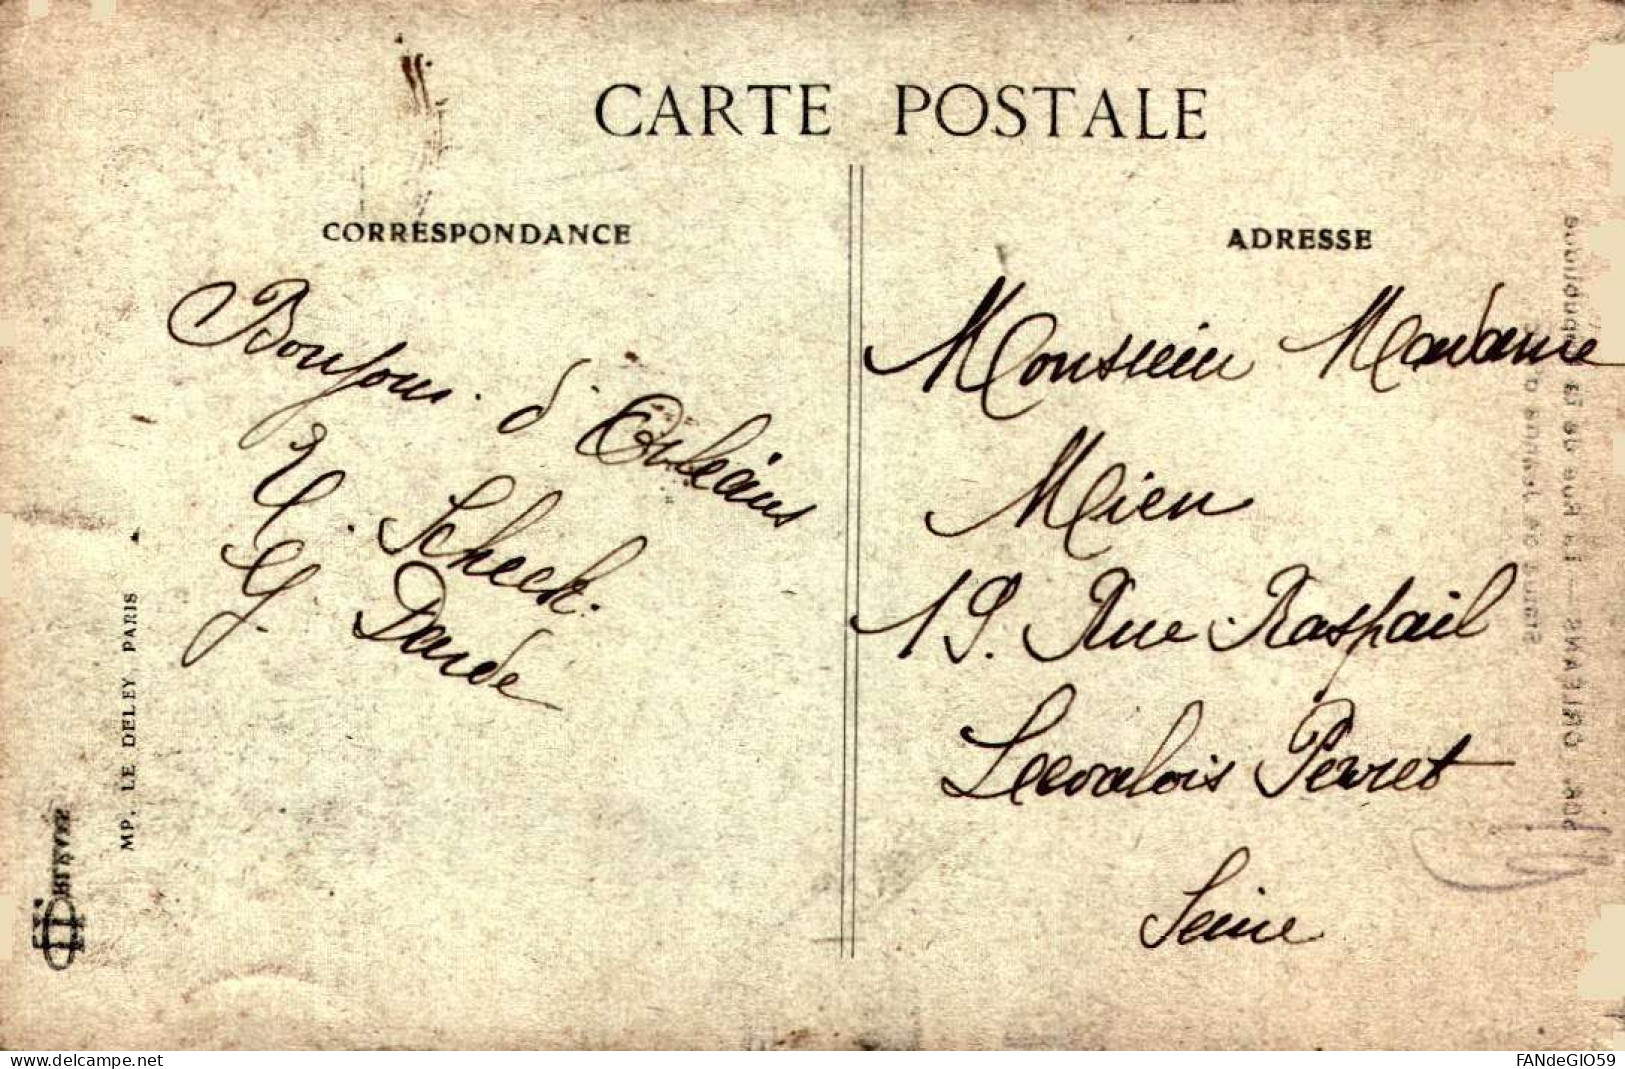 CARTE POSTALE
CORRESPONDANCE
Bonjour d'Orléans
Scheck.
G. Darde
ADRESSE
Monsieur Madame
Mien
19. Rue Raspail
Levalois Perret
Seine
MP. LE DELEY, PARIS
ORLÉANS — La Rue de la République
Statue de Jeanne d'
website:www.delcampe.net
FANdeGIO59